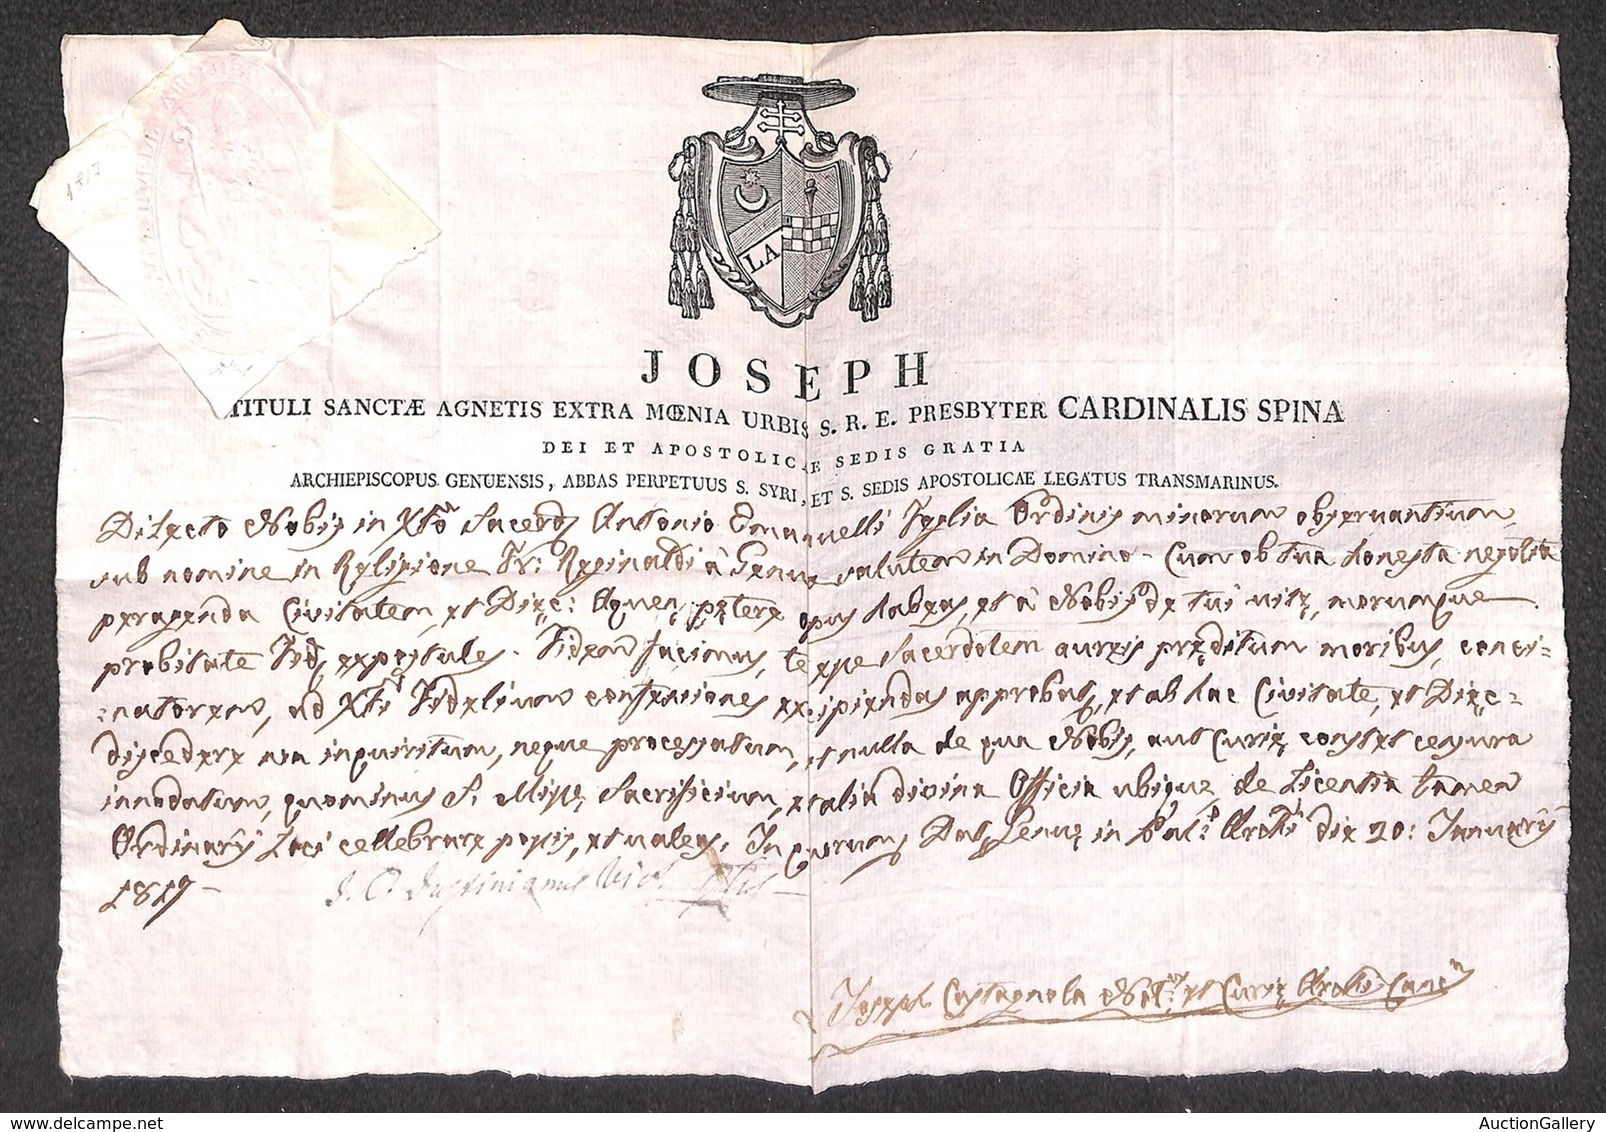 1817
LA
JOSEPH
TITULI SANCTÆ AGNETIS EXTRA MŒNIA URBIS S. R. E. PRESBYTER CARDINALIS SPINA
DEI ET APOSTOLICÆ SEDIS GRATIA
ARCHIEPISCOPUS GENUENSIS, ABBAS PERPETUUS S. SYRI, ET S. SEDIS APOSTOLICAE LEGATUS TRANSMARINUS.
Dilecto Nobis in Xto Sacerd. Antonio Emanuelli Iglia Ordinis minorum observantium,
sub nomine in Religione Fr. Reginaldi à Genua salutem in Domino - Cum ob tua honesta negotia
peragenda Civitatem, et Dięc: Aquen, pętere opus habeas, et à Nobis de tui vitę, morumque
probitate Fid, expostules - Fidem facimus, te esse Sacerdotem aureis pręditum moribus, conci=
=natorem, ad Xti Fidelium confessiones excipiendas approbas, et ab hac Civitate, et Dięc-
discedere non inquisitum, neque processatum, et nulla de qua Nobis, aut Curię constet censura
innodatum, quominus S. Missę Sacrificium, et alia divina Officia ubique de Licentia tamen
Ordinarij Loci cellebrare possis, et valeas, In quorum Dat, Genuę in Pal: Archi die 20: Januarij
1819 -
Justinianus Vic.
Joseph Castagnola Not: et Curię Archi Canc
AuctionGallery